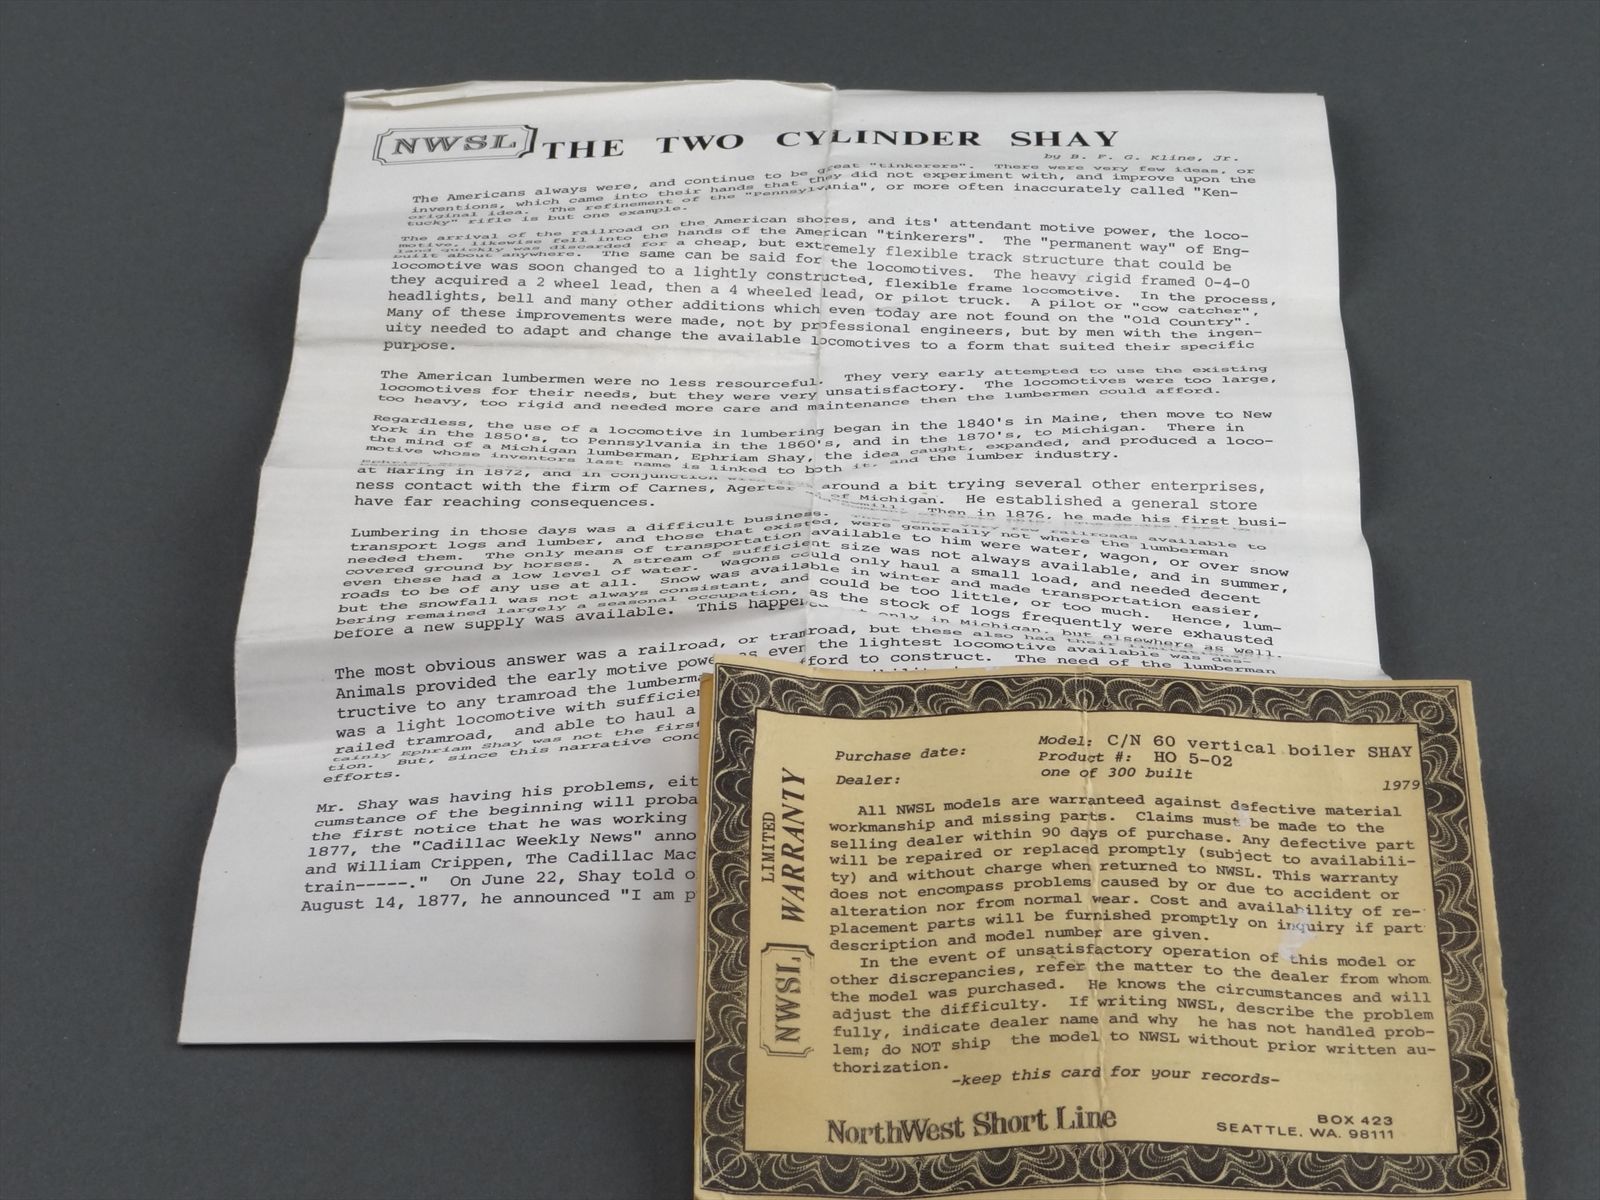 NWSL THE TWO CYLINDER SHAY
by B. F. G. Kline, Jr.
The Americans always were, and continue to be great "tinkerers". There were very few ideas, or
inventions, which came into their hands that they did not experiment with, and improve upon the
original idea. The refinement of the "Pennsylvania", or more often inaccurately called "Ken-
tucky" rifle is but one example.
The arrival of the railroad on the American shores, and its' attendant motive power, the loco-
motive, likewise fell into the hands of the American "tinkerers". The "permanent way" of Eng-
land quickly was discarded for a cheap, but extremely flexible track structure that could be
built about anywhere. The same can be said for the locomotives. The heavy rigid framed 0-4-0
locomotive was soon changed to a lightly constructed, flexible frame locomotive. In the process,
they acquired a 2 wheel lead, then a 4 wheeled lead, or pilot truck. A pilot or "cow catcher",
headlights, bell and many other additions which even today are not found on the "Old Country".
Many of these improvements were made, not by professional engineers, but by men with the ingen-
uity needed to adapt and change the available locomotives to a form that suited their specific
purpose.
The American lumbermen were no less resourceful. They very early attempted to use the existing
locomotives for their needs, but they were very unsatisfactory. The locomotives were too large,
too heavy, too rigid and needed more care and maintenance then the lumbermen could afford.
Regardless, the use of a locomotive in lumbering began in the 1840's in Maine, then move to New
York in the 1850's, to Pennsylvania in the 1860's, and in the 1870's, to Michigan. There in
the mind of a Michigan lumberman, Ephriam Shay, the idea caught, expanded, and produced a loco-
motive whose inventors last name is linked to both it, and the lumber industry.
around a bit trying several other enterprises,
of Michigan. He established a general store
at Haring in 1872, and in conjunction Then in 1876, he made his first busi-
ness contact with the firm of Carnes, Agerter
have far reaching consequences.
Lumbering in those days was a difficult business. There were very few railroads available to
transport logs and lumber, and those that existed, were generally not where the lumberman
needed them. The only means of transportation available to him were water, wagon, or over snow
covered ground by horses. A stream of sufficient size was not always available, and in summer,
even these had a low level of water. Wagons could only haul a small load, and needed decent
roads to be of any use at all. Snow was available in winter and made transportation easier,
but the snowfall was not always consistant, and could be too little, or too much. Hence, lum-
bering remained largely a seasonal occupation, as the stock of logs frequently were exhausted
before a new supply was available. This happened not only in Michigan, but elsewhere as well.
The most obvious answer was a railroad, or tramroad, but these also had their
Animals provided the early motive power as even the lightest locomotive available was des-
tructive to any tramroad the lumberma ford to construct. The need of the lumberman
was a light locomotive with sufficien
railed tramroad, and able to haul a
tainly Ephriam Shay was not the first
tion. But, since this narrative conc
efforts.
Mr. Shay was having his problems, eit
cumstance of the beginning will proba
the first notice that he was working
1877, the "Cadillac Weekly News" anno
and William Crippen, The Cadillac Mac
train-----." On June 22, Shay told o
August 14, 1877, he announced "I am p
LIMITED
WARRANTY
NWSL
Purchase date: Model: C/N 60 vertical boiler SHAY
Product #: HO 5-02
Dealer: one of 300 built
1979
All NWSL models are warranteed against defective material
workmanship and missing parts. Claims must be made to the
selling dealer within 90 days of purchase. Any defective part
will be repaired or replaced promptly (subject to availabili-
ty) and without charge when returned to NWSL. This warranty
does not encompass problems caused by or due to accident or
alteration nor from normal wear. Cost and availability of re-
placement parts will be furnished promptly on inquiry if part
description and model number are given.
In the event of unsatisfactory operation of this model or
other discrepancies, refer the matter to the dealer from whom
the model was purchased. He knows the circumstances and will
adjust the difficulty. If writing NWSL, describe the problem
fully, indicate dealer name and why he has not handled prob-
lem; do NOT ship the model to NWSL without prior written au-
thorization.
-keep this card for your records-
NorthWest Short Line
BOX 423
SEATTLE, WA. 98111